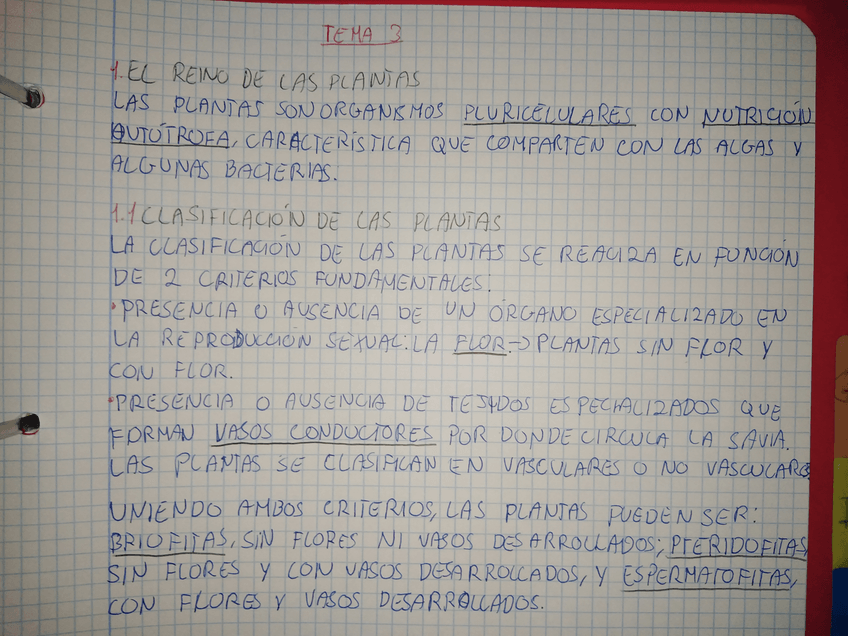 TEMA 3
1. EL REINO DE LAS PLANTAS
LAS PLANTAS SON ORGANISMOS PLURICELULARES CON NUTRICIÓN
AUTÓTROFA, CARACTERÍSTICA QUE COMPARTEN CON LAS ALGAS Y
ALGUNAS BACTERIAS.
1.1 CLASIFICACIÓN DE LAS PLANTAS
LA CLASIFICACIÓN DE LAS PLANTAS SE REALIZA EN FUNCIÓN
DE 2 CRITERIOS FUNDAMENTALES:
•PRESENCIA O AUSENCIA DE UN ÓRGANO ESPECIALIZADO EN
LA REPRODUCCIÓN SEXUAL: LA FLOR.-> PLANTAS SIN FLOR Y
CON FLOR.
•PRESENCIA O AUSENCIA DE TEJIDOS ESPECIALIZADOS QUE
FORMAN VASOS CONDUCTORES POR DONDE CIRCULA LA SAVIA.
LAS PLANTAS SE CLASIFICAN EN VASCULARES O NO VASCULARES
UNIENDO AMBOS CRITERIOS, LAS PLANTAS PUEDEN SER:
BRIOFITAS, SIN FLORES NI VASOS DESARROLLADOS; PTERIDOFITAS,
SIN FLORES Y CON VASOS DESARROLLADOS, Y ESPERMATOFITAS,
CON FLORES Y VASOS DESARROLLADOS.